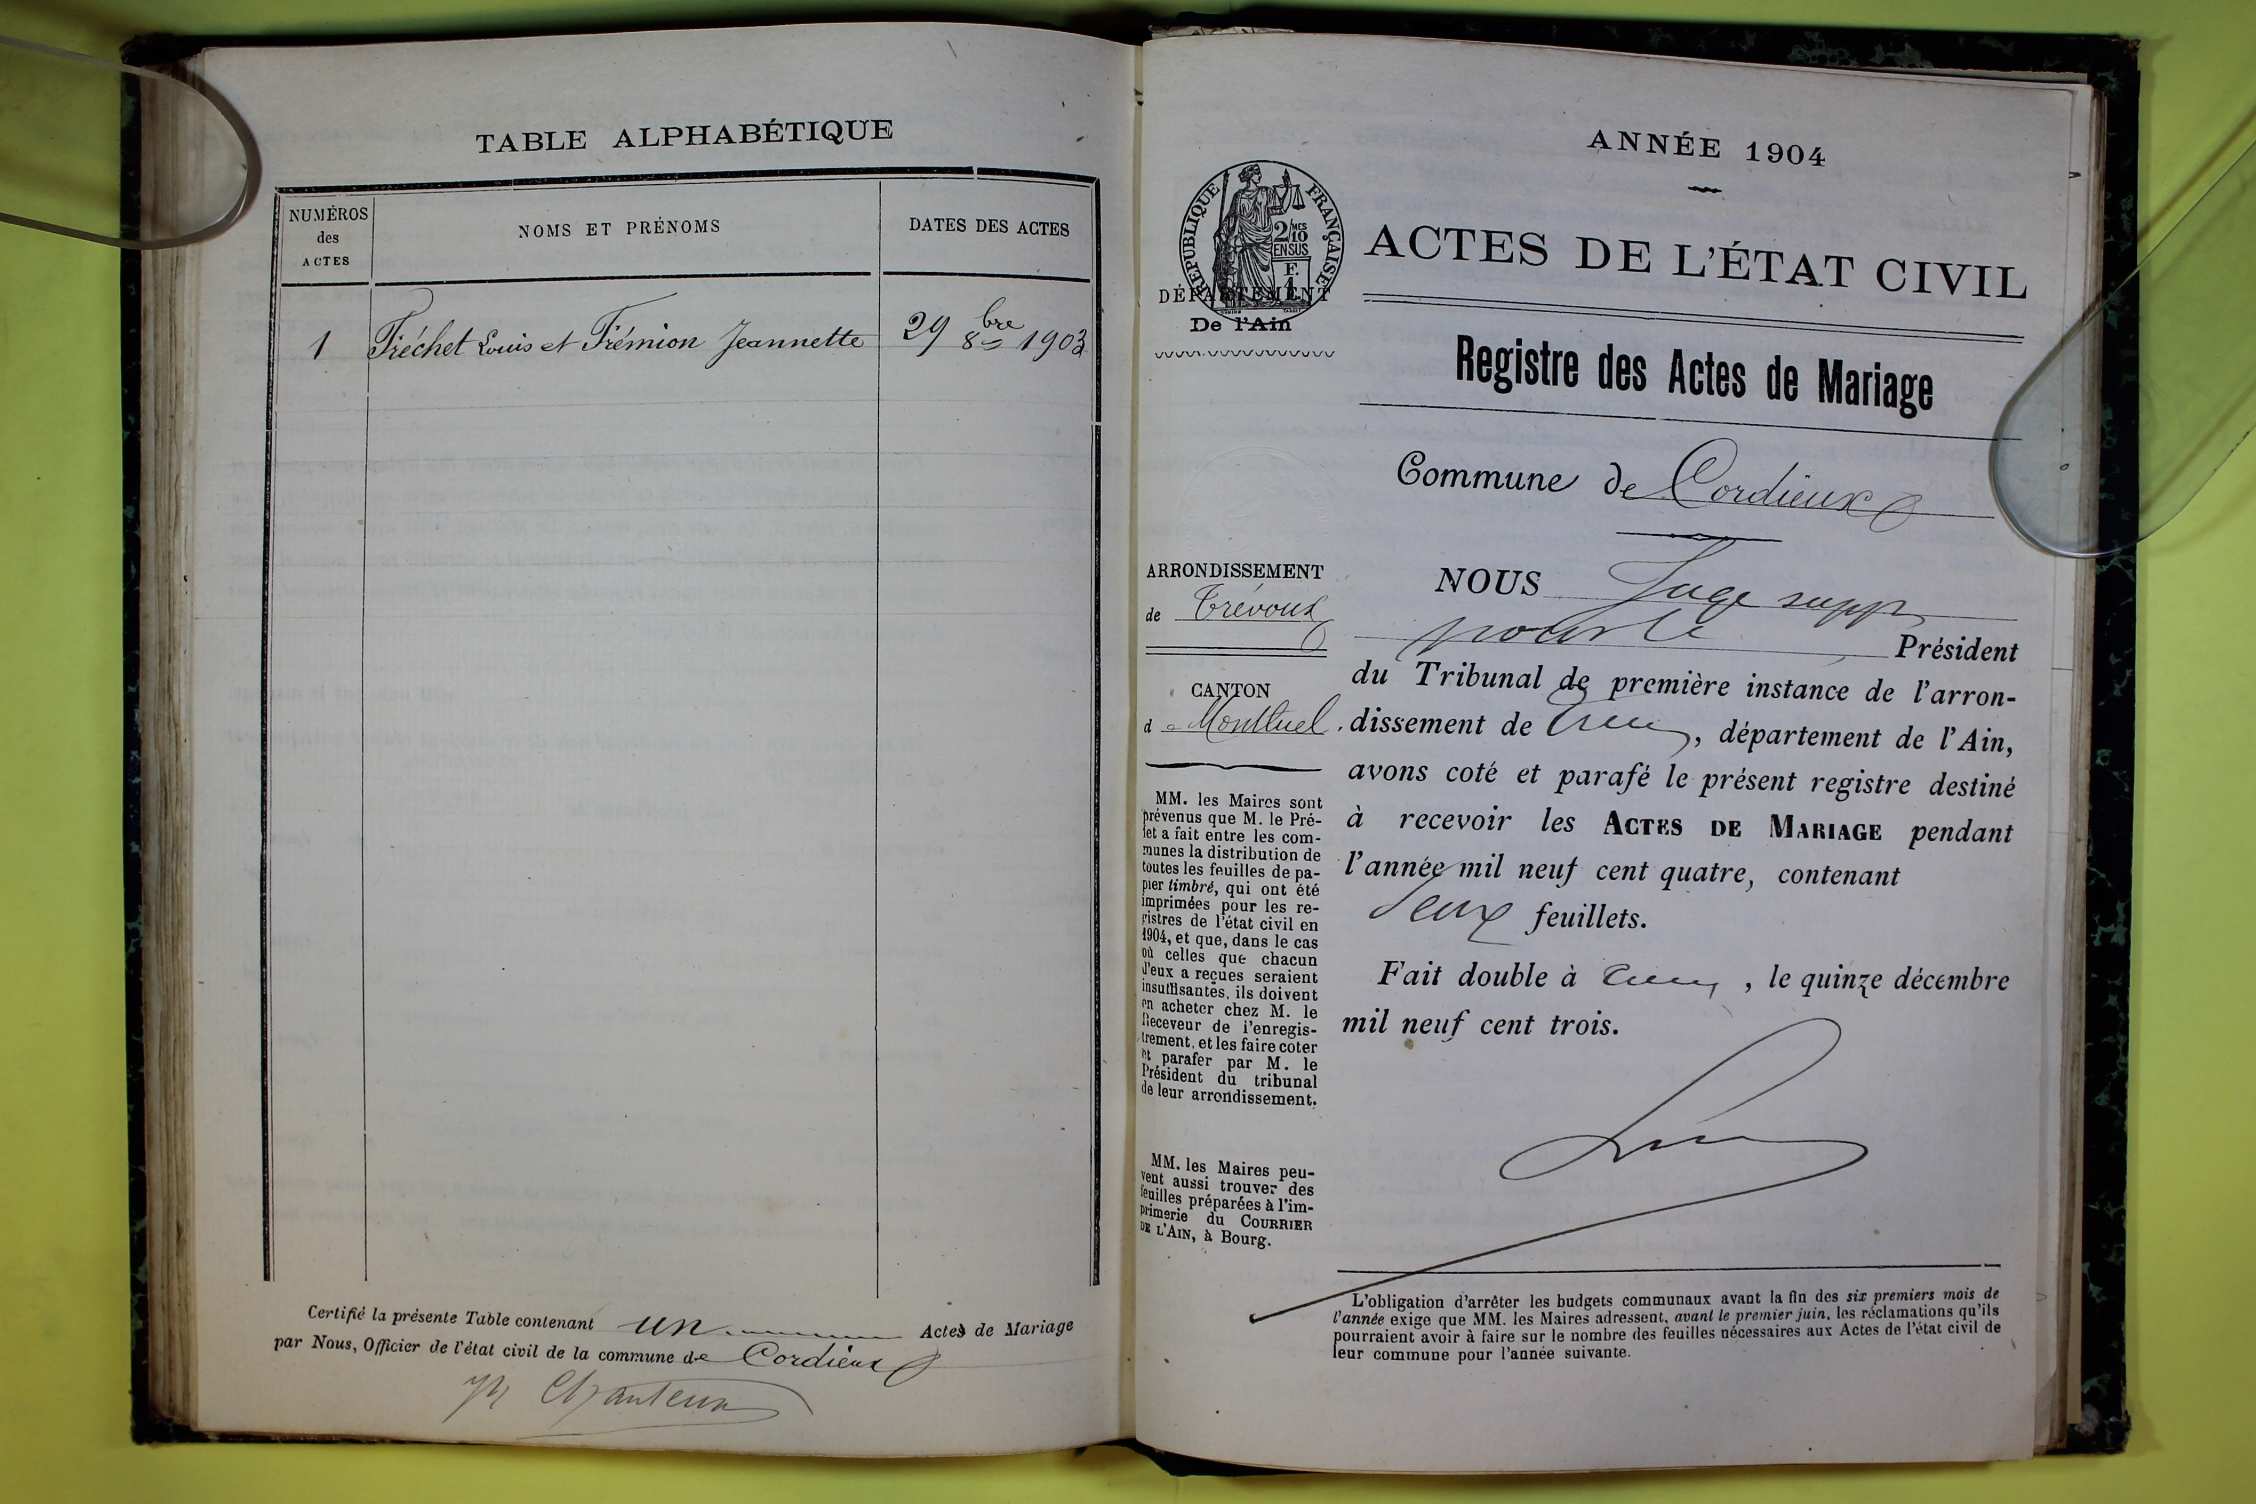 TABLE ALPHABÉTIQUE
NUMÉROS
des
ACTES
NOMS ET PRÉNOMS
DATES DES ACTES
1 Fréchet Louis et Frémion Jeannette 29 8bre 1903
Certifié la présente Table contenant un Actes de Mariage
par Nous, Officier de l'état civil de la commune de Cordieux
Chanteur
ANNÉE 1904
RÉPUBLIQUE FRANÇAISE
2/10 MES
EN SUS
F.
1
DÉPARTEMENT
De l'Ain
ACTES DE L'ÉTAT CIVIL
Registre des Actes de Mariage
Commune de Cordieux
ARRONDISSEMENT
de Trévoux
CANTON
de Montluel
MM. les Maires sont
prévenus que M. le Pré-
fet a fait entre les com-
munes la distribution de
toutes les feuilles de pa-
pier timbré, qui ont été
imprimées pour les re-
gistres de l'état civil en
1904, et que, dans le cas
où celles que chacun
d'eux a reçues seraient
insuffisantes, ils doivent
en acheter chez M. le
Receveur de l'enregis-
trement, et les faire coter
et parafer par M. le
Président du tribunal
de leur arrondissement.
MM. les Maires peu-
vent aussi trouver des
feuilles préparées à l'im-
primerie du COURRIER
DE L'AIN, à Bourg.
NOUS Juge supp
pour le Président
du Tribunal de première instance de l'arron-
dissement de , département de l'Ain,
avons coté et parafé le présent registre destiné
à recevoir les ACTES DE MARIAGE pendant
l'année mil neuf cent quatre, contenant
deux feuillets.
Fait double à , le quinze décembre
mil neuf cent trois.
L'obligation d'arrêter les budgets communaux avant la fin des six premiers mois de
l'année exige que MM. les Maires adressent, avant le premier juin, les réclamations qu'ils
pourraient avoir à faire sur le nombre des feuilles nécessaires aux Actes de l'état civil de
leur commune pour l'année suivante.